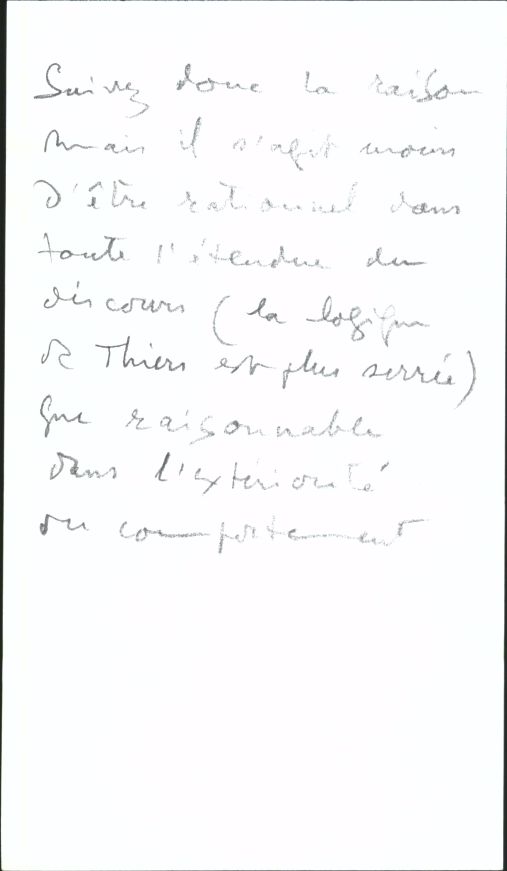 Suivez donc la raison
mais il s'agit moins
d'être rationnel dans
toute l'étendue du
discours (la logique
de Thiers est plus serrée)
que raisonnable
dans l'extériorité
du comportement